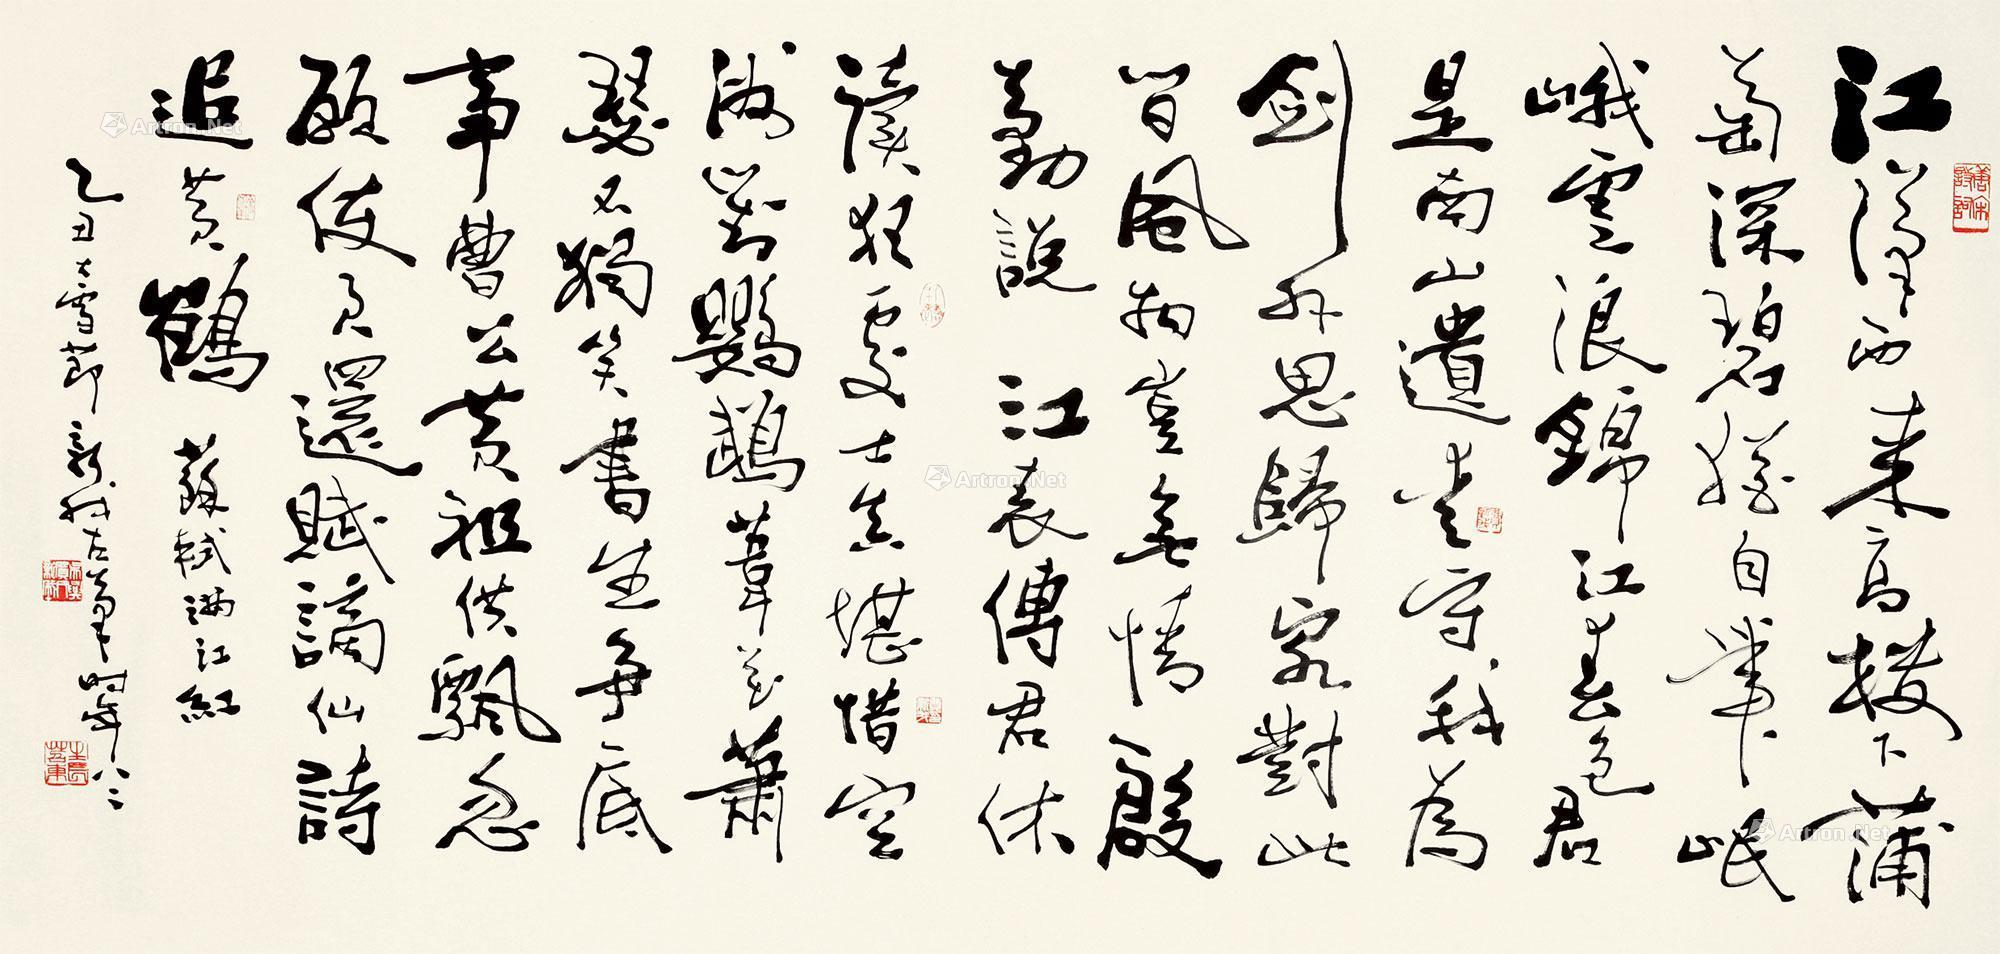 江漢西来高樓下蒲
萄深碧猶自帶岷
峨雲浪錦江春色君
是南山遺愛守我為
劍外思歸客對此
間風物豈無情殷
勤說 江表傳君休
讀狂處士真堪惜空
洲對鸚鵡葦花蕭
瑟不獨笑書生爭底
事曹公黃祖俱飄忽
願使君還賦謫仙詩
追黃鶴 蘇軾滿江紅
乙丑大雪節 新我左筆 時年八二
Artron.Net
Artron.Net
Artron.Net